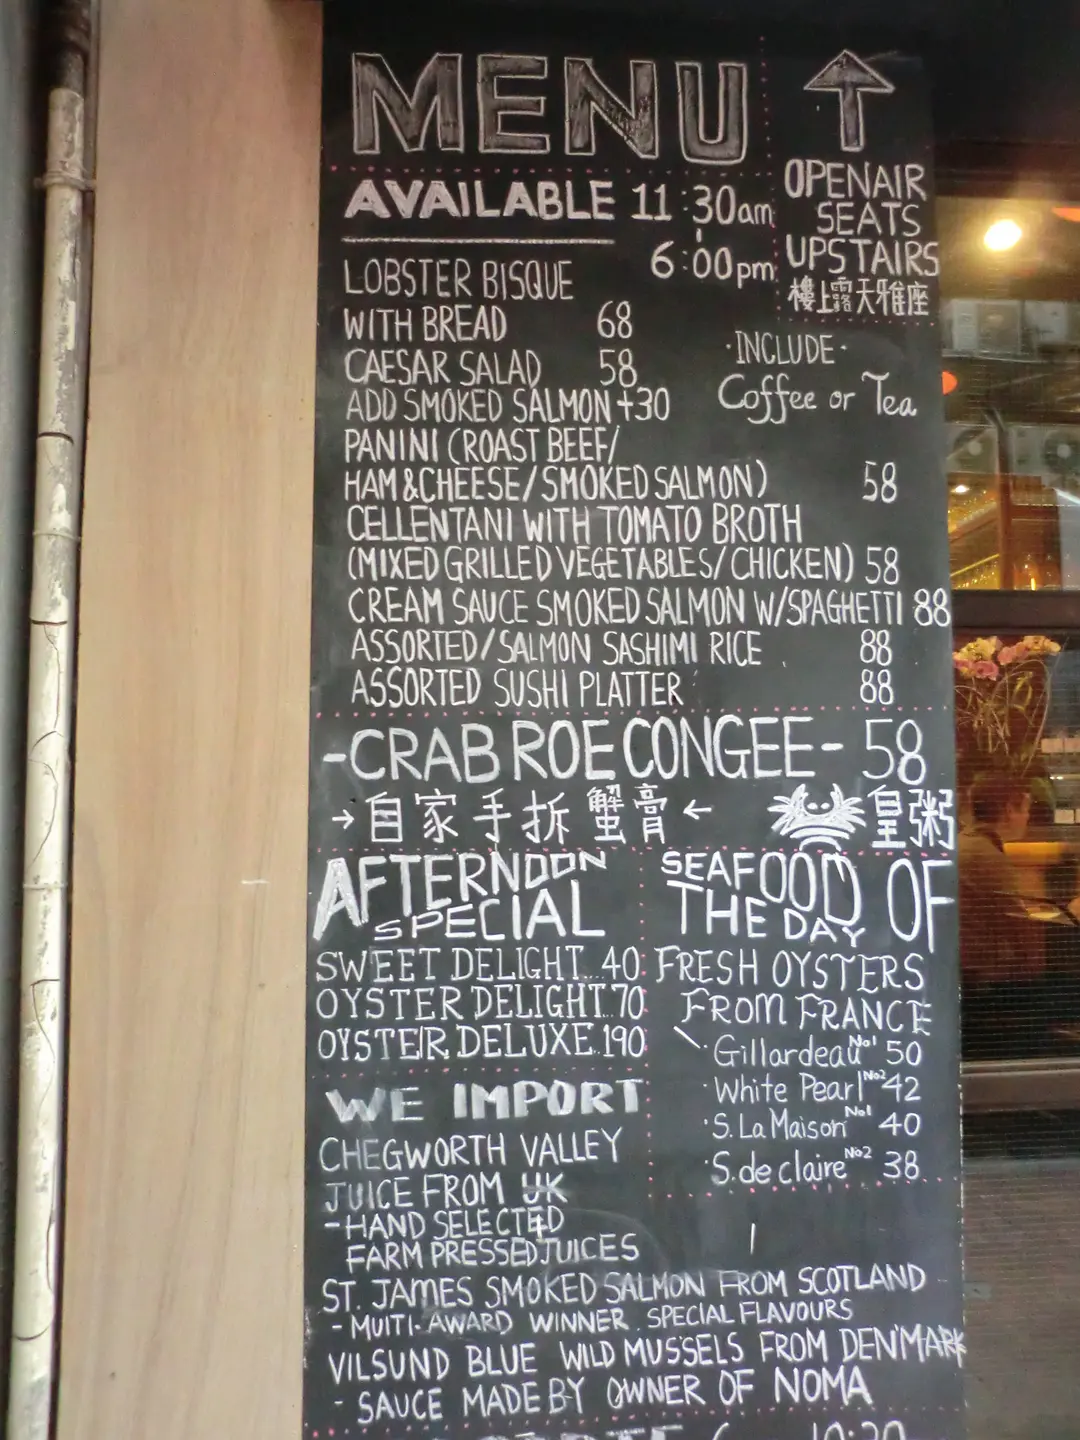 MENU
AVAILABLE 11:30am
-
6:00pm
OPENAIR
SEATS
UPSTAIRS
樓上露天雅座
LOBSTER BISQUE
WITH BREAD 68
CAESAR SALAD 58
ADD SMOKED SALMON +30
·INCLUDE·
Coffee or Tea
PANINI (ROAST BEEF/
HAM&CHEESE/SMOKED SALMON) 58
CELLENTANI WITH TOMATO BROTH
(MIXED GRILLED VEGETABLES/CHICKEN) 58
CREAM SAUCE SMOKED SALMON W/SPAGHETTI 88
ASSORTED/SALMON SASHIMI RICE 88
ASSORTED SUSHI PLATTER 88
-CRAB ROE CONGEE- 58
→自家手拆蟹膏← 皇粥
AFTERNOON
SPECIAL
SWEET DELIGHT...40
OYSTER DELIGHT..70
OYSTER DELUXE.190
SEAFOOD OF
THE DAY
FRESH OYSTERS
FROM FRANCE
·Gillardeau No1 50
·White Pearl No2 42
·S. La Maison No1 40
·S. de claire No2 38
WE IMPORT
CHEGWORTH VALLEY
JUICE FROM UK
-HAND SELECTED
FARM PRESSED JUICES
ST. JAMES SMOKED SALMON FROM SCOTLAND
-MUITI-AWARD WINNER. SPECIAL FLAVOURS
VILSUND BLUE WILD MUSSELS FROM DEN'MARK
- SAUCE MADE BY OWNER OF NOMA